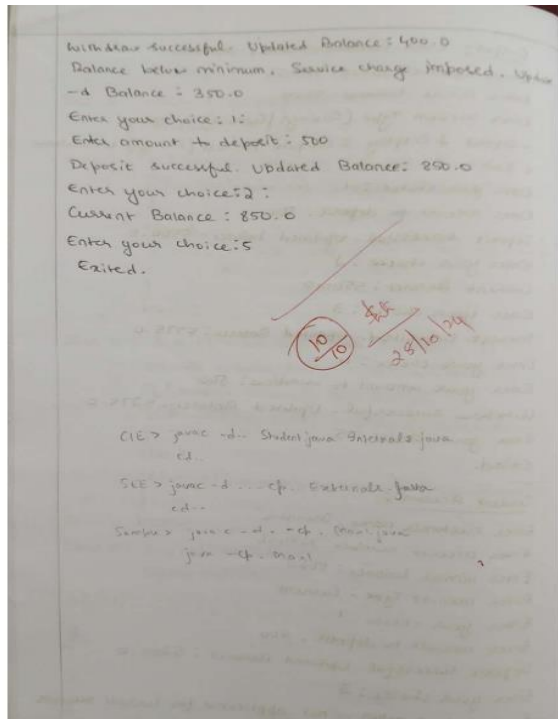 Withdraw successful. Updated Balance: 400.0
Balance below minimum. Service charge imposed. Update
-d Balance: 350.0
Enter your choice: 1:
Enter amount to deposit: 500
Deposit successful. Updated Balance: 850.0
Enter your choice: 2:
Current Balance: 850.0
Enter your choice: 5
Exited.
10/10
25/10/24
CIE > javac -d .. Student.java Internals.java
cd..
SEE > javac -d .. -cp .. Externals.java
cd..
javac -d . -cp . Main.java
java -cp . Main